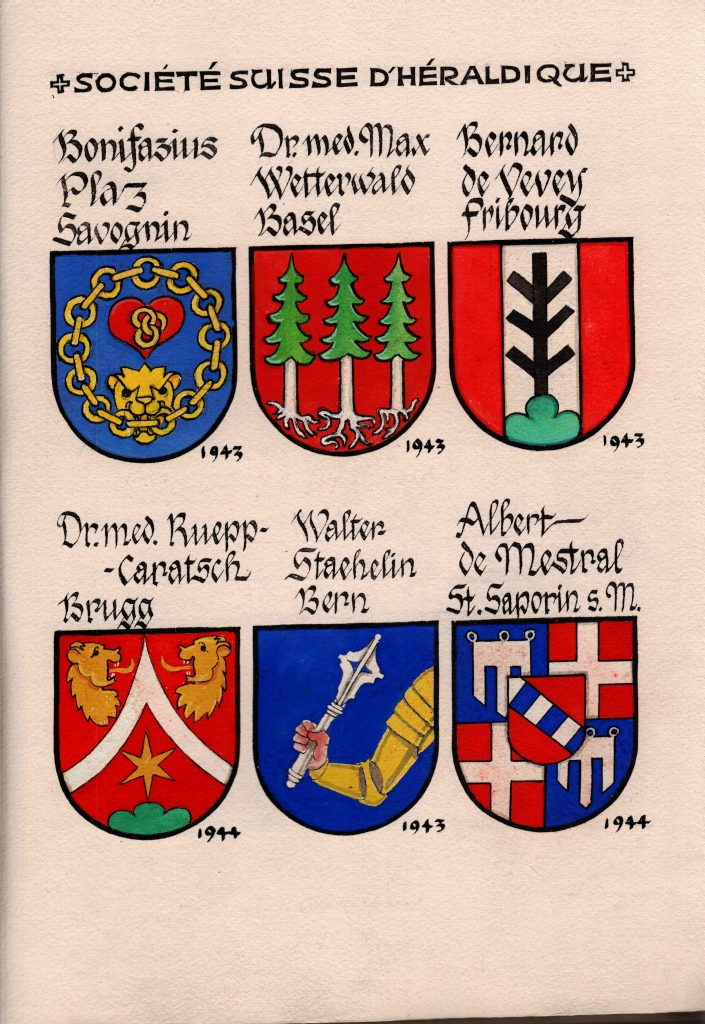 SOCIÉTÉ SUISSE D'HÉRALDIQUE
Bonifazius
Plaz
Savognin
Dr. med. Max
Wetterwald
Basel
Bernard
de Vevey
Fribourg
1943
1943
1943
Dr. med. Ruepp-
-Caratsch
Brugg
Walter
Staehelin
Bern
Albert
de Mestral
St. Saporin s. M.
1944
1943
1944